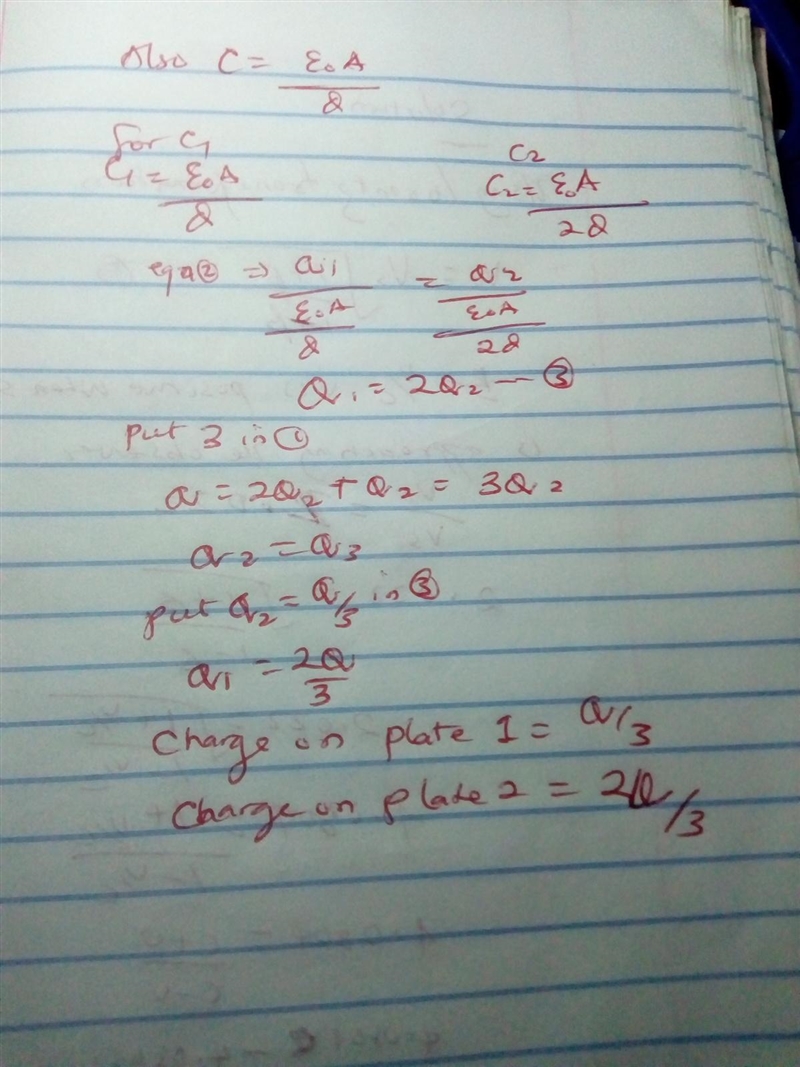 Also C = ε₀A / d
For C₁ C₂
C₁ = ε₀A / d C₂ = ε₀A / 2d
eqn② ⇒ Q₁ / (ε₀A / d) = Q₂ / (ε₀A / 2d)
Q₁ = 2Q₂ — ③
put 3 in ①
Q = 2Q₂ + Q₂ = 3Q₂
Q₂ = Q₃
put Q₂ = Q/3 in ③
Q₁ = 2Q / 3
Charge on plate 1 = Q/3
Charge on plate 2 = 2Q/3